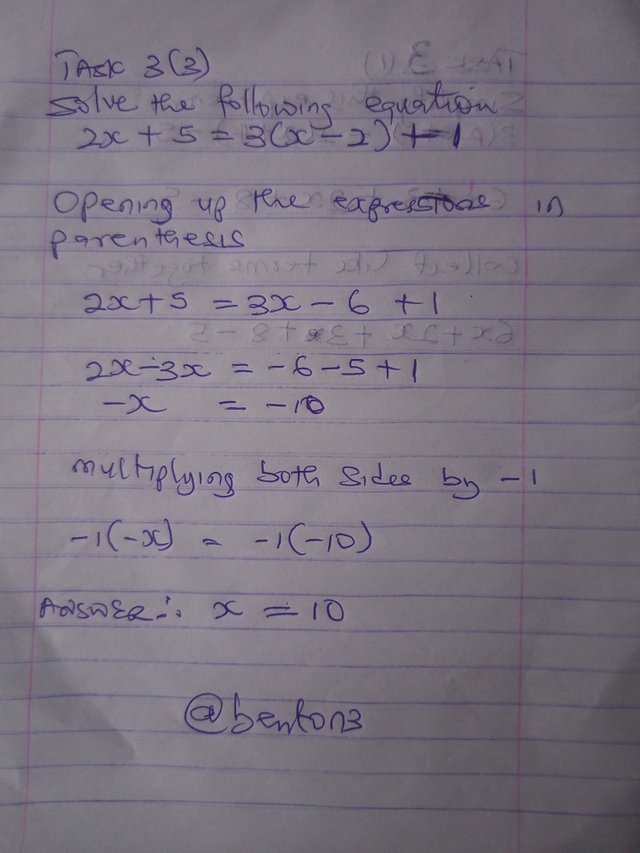 TASK 3(3)
Solve the following equation
2x + 5 = 3(x - 2) + 1
Opening up the expressions in
parenthesis
2x + 5 = 3x - 6 + 1
2x - 3x = -6 - 5 + 1
-x = -10
multiplying both sides by -1
-1(-x) = -1(-10)
Answer ∴ x = 10
@benton3